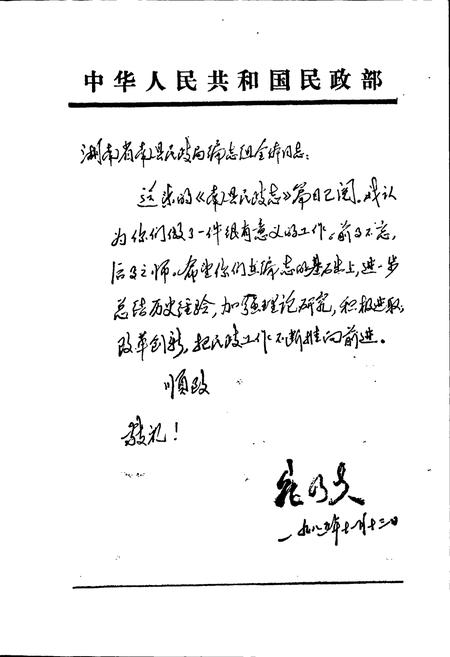 中华人民共和国民政部
湖南省南县民政局编志组全体同志：
送来的《南县民政志》篇目已阅。我认
为你们做了一件很有意义的工作。前事不忘，
后事之师。希望你们在编志的基础上，进一步
总结历史经验，加强理论研究，积极进取，
改革创新，把民政工作不断推向前进。
顺致
敬礼！
崔乃夫
一九八五年十一月十三日